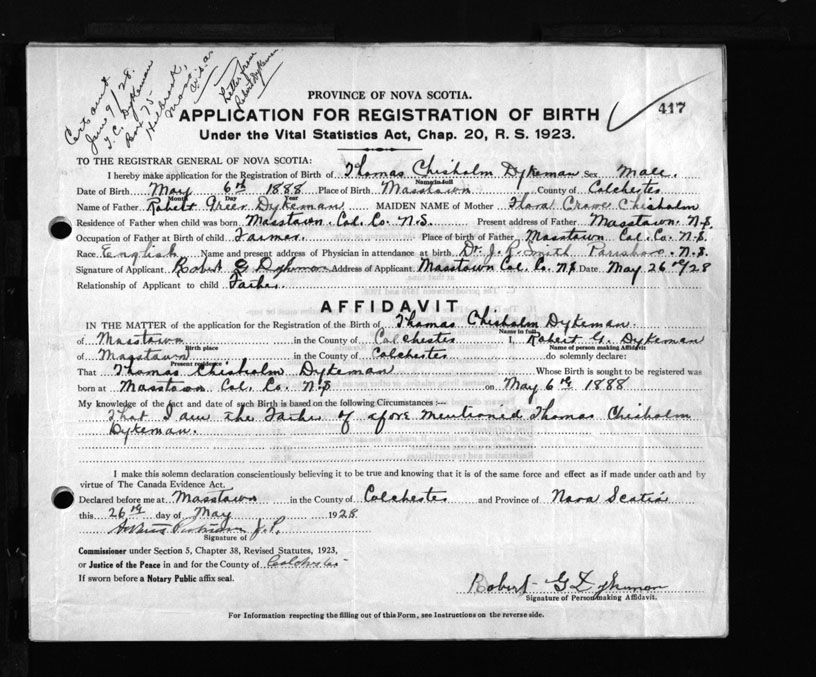 Cert sent
June 9/28.
T. C. Dykeman
Box 75-
Holbrook,
Mass.
U.S.A.
Letter from
Robert Dykeman
417
PROVINCE OF NOVA SCOTIA.
APPLICATION FOR REGISTRATION OF BIRTH
Under the Vital Statistics Act, Chap. 20, R. S. 1923.
TO THE REGISTRAR GENERAL OF NOVA SCOTIA:
I hereby make application for the Registration of Birth of Thomas Chisholm Dykeman Sex Male.
Name in full
Date of Birth May 6th 1888 Place of Birth Masstown County of Colchester
Month Day Year
Name of Father Robert Greer Dykeman MAIDEN NAME of Mother Flora Chisholm
Residence of Father when child was born Masstown. Col. Co. N.S. Present address of Father Masstown. N.S.
Occupation of Father at Birth of child Farmer. Place of birth of Father Masstown Col. Co. N.S.
Race English Name and present address of Physician in attendance at birth Dr. J. R. Smith Parrsboro. N.S.
Signature of Applicant Robert G Dykeman Address of Applicant Masstown Col. Co. N.S Date May 26th/28
Relationship of Applicant to child Father.
AFFIDAVIT
IN THE MATTER of the application for the Registration of the Birth of Thomas Chisholm Dykeman.
Name in full
of Masstown in the County of Colchester I, Robert G. Dykeman
Birth place Name of person making Affidavit
of Masstown in the County of Colchester do solemnly declare:
Present residence
That Thomas Chisholm Dykeman Whose Birth is sought to be registered was
born at Masstown. Col. Co. N.S on May 6th 1888
My knowledge of the fact and date of such Birth is based on the following Circumstances :—
That I am the Father of afore mentioned Thomas Chisholm
Dykeman.
I make this solemn declaration conscientiously believing it to be true and knowing that it is of the same force and effect as if made under oath and by
virtue of The Canada Evidence Act.
Declared before me at Masstown in the County of Colchester and Province of Nova Scotia
this 26th day of May 1928
J.P.
Signature of
Commissioner under Section 5, Chapter 38, Revised Statutes, 1923,
or Justice of the Peace in and for the County of Colchester
If sworn before a Notary Public affix seal.
Robert G Dykeman
Signature of Person making Affidavit.
For Information respecting the filling out of this Form, see Instructions on the reverse side.